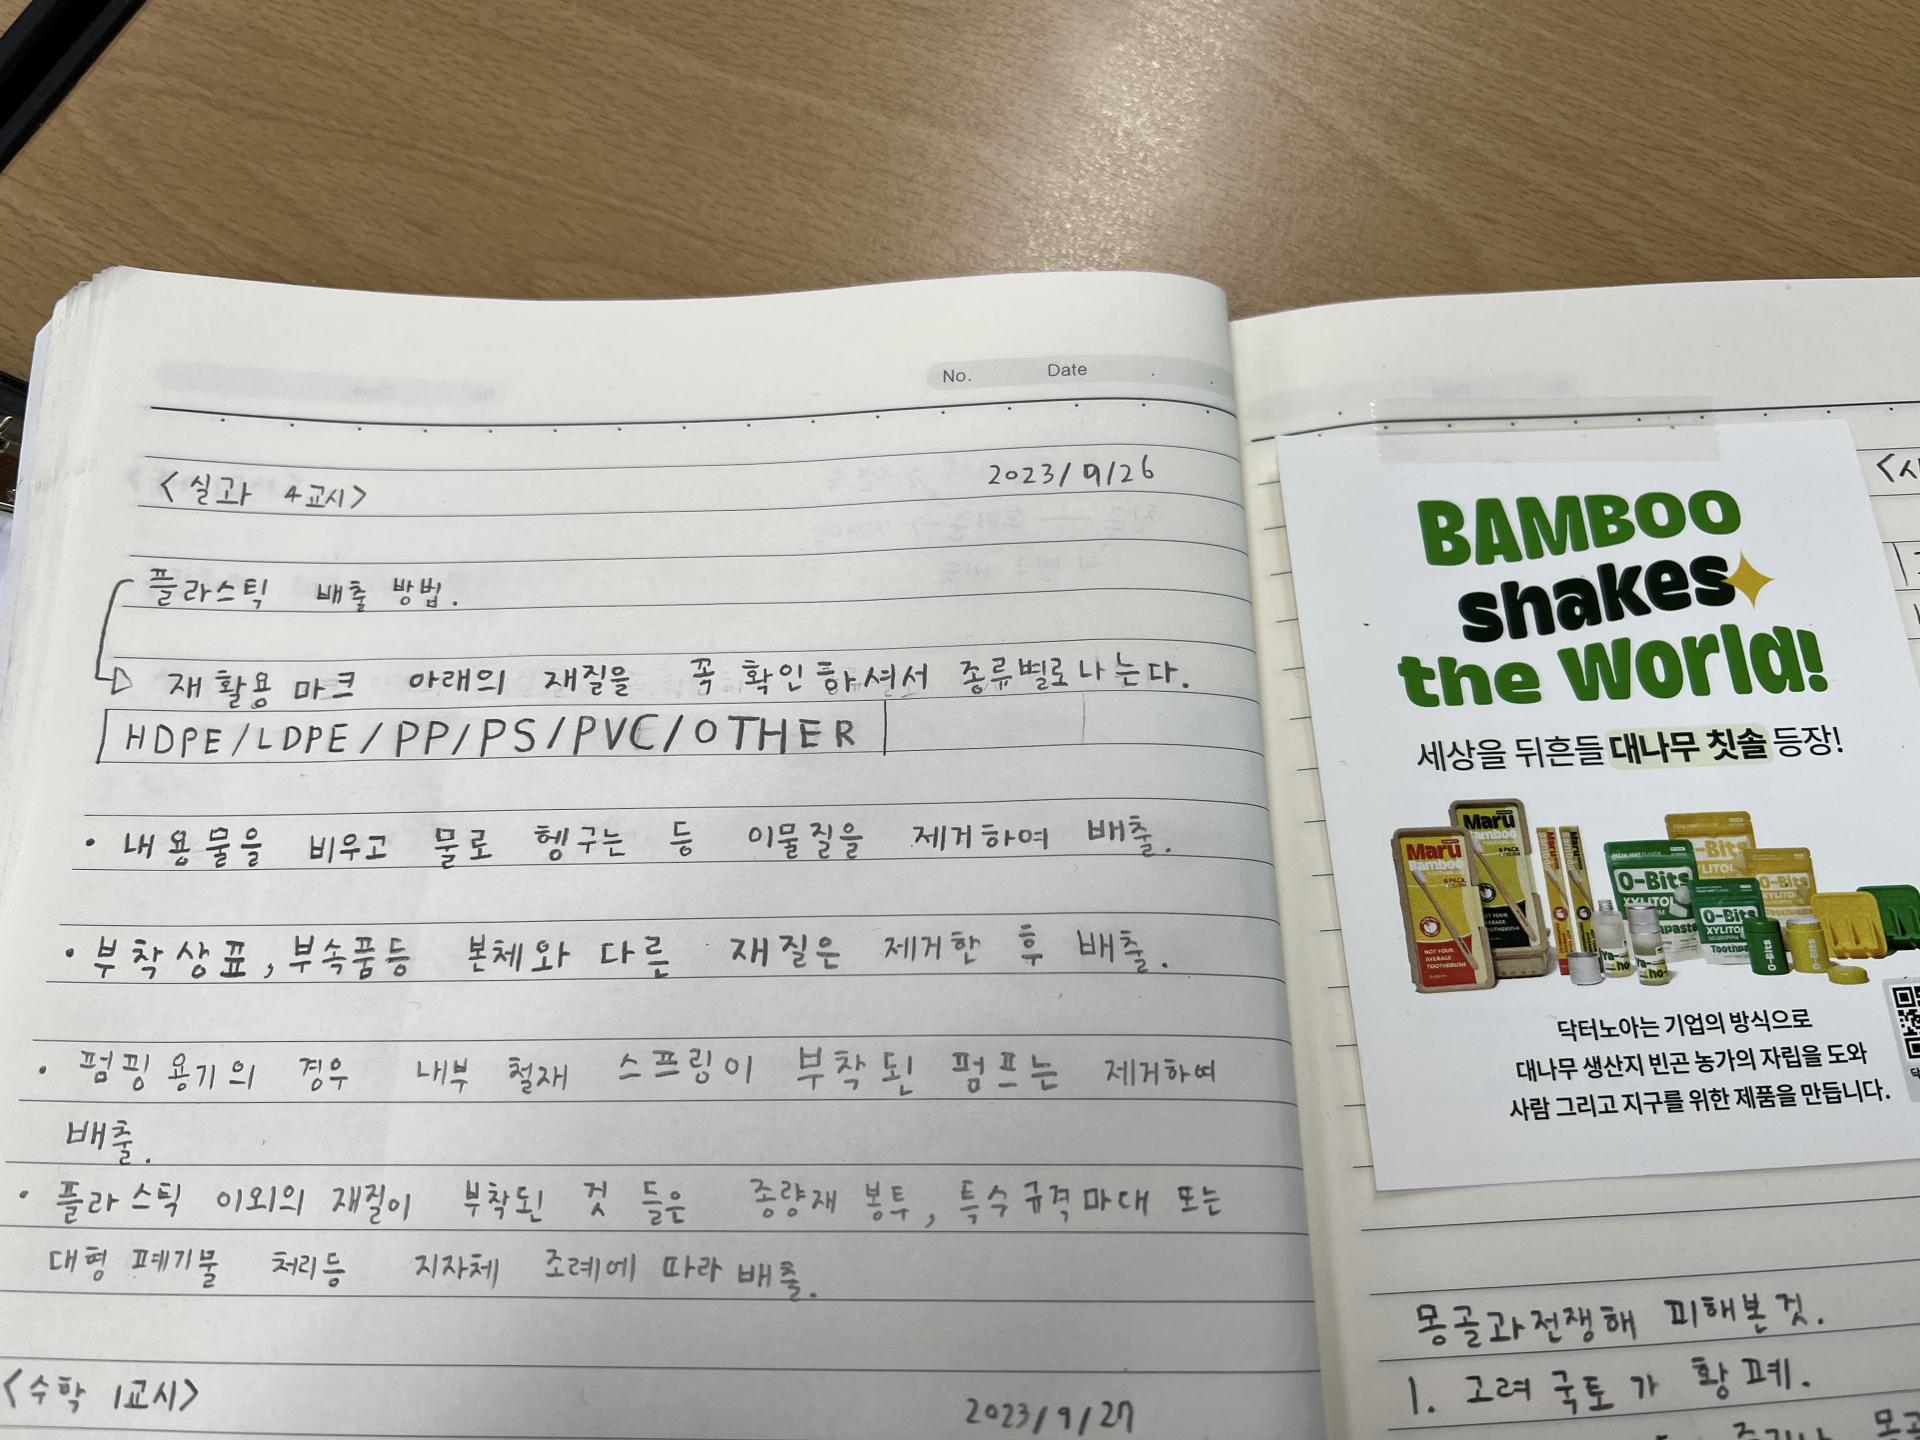 No. Date
<실과 4교시> 2023/9/26
플라스틱 배출 방법.
재활용 마크 아래의 재질을 꼭 확인하셔서 종류별로나는다.
HDPE/LDPE/PP/PS/PVC/OTHER
· 내용물을 비우고 물로 헹구는 등 이물질을 제거하여 배출.
· 부착상표, 부속품등 본체와 다른 재질은 제거한 후 배출.
· 펌핑용기의 경우 내부 철재 스프링이 부착된 펌프는 제거하여
배출.
· 플라스틱 이외의 재질이 부착된 것 들은 종량재 봉투, 특수규격마대 또는
대형 폐기물 처리등 지자체 조례에 따라 배출.
<수학 1교시> 2023/9/27
BAMBOO
shakes
the World!
세상을 뒤흔들 대나무 칫솔 등장!
Maru
Bamboo
TOOTHBRUSH
NOT YOUR
AVERAGE
TOOTHBRUSH
Maru
Bamboo
O-Bits
XYLITOL
O-Bits
XYLITOL
Ya-
ho-
Ya-
ho-
닥터노아는 기업의 방식으로
대나무 생산지 빈곤 농가의 자립을 도와
사람 그리고 지구를 위한 제품을 만듭니다.
몽골과전쟁해 피해본것.
1. 고려 국토가 황폐.